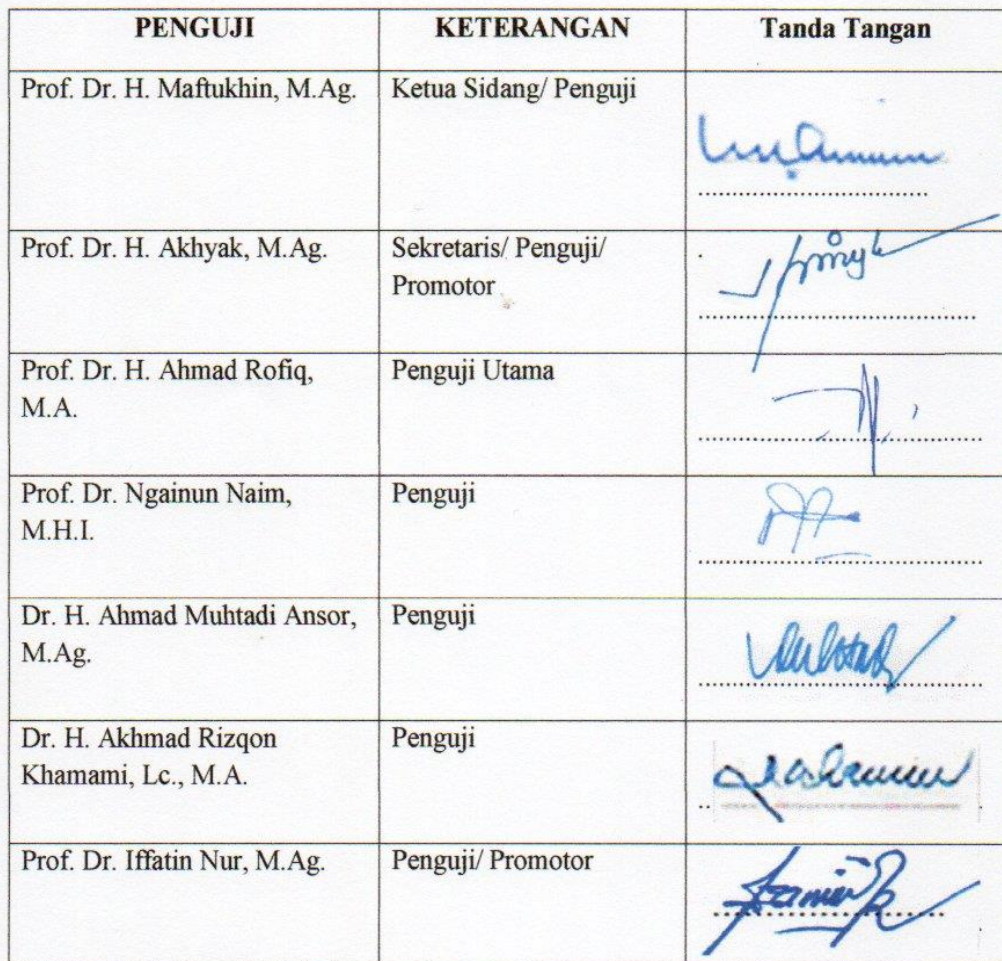 PENGUJI KETERANGAN Tanda Tangan
Prof. Dr. H. Maftukhin, M.Ag. Ketua Sidang/ Penguji
Prof. Dr. H. Akhyak, M.Ag. Sekretaris/ Penguji/
Promotor
Prof. Dr. H. Ahmad Rofiq, Penguji Utama
M.A.
Prof. Dr. Ngainun Naim, Penguji
M.H.I.
Dr. H. Ahmad Muhtadi Ansor, Penguji
M.Ag.
Dr. H. Akhmad Rizqon Penguji
Khamami, Lc., M.A.
Prof. Dr. Iffatin Nur, M.Ag. Penguji/ Promotor